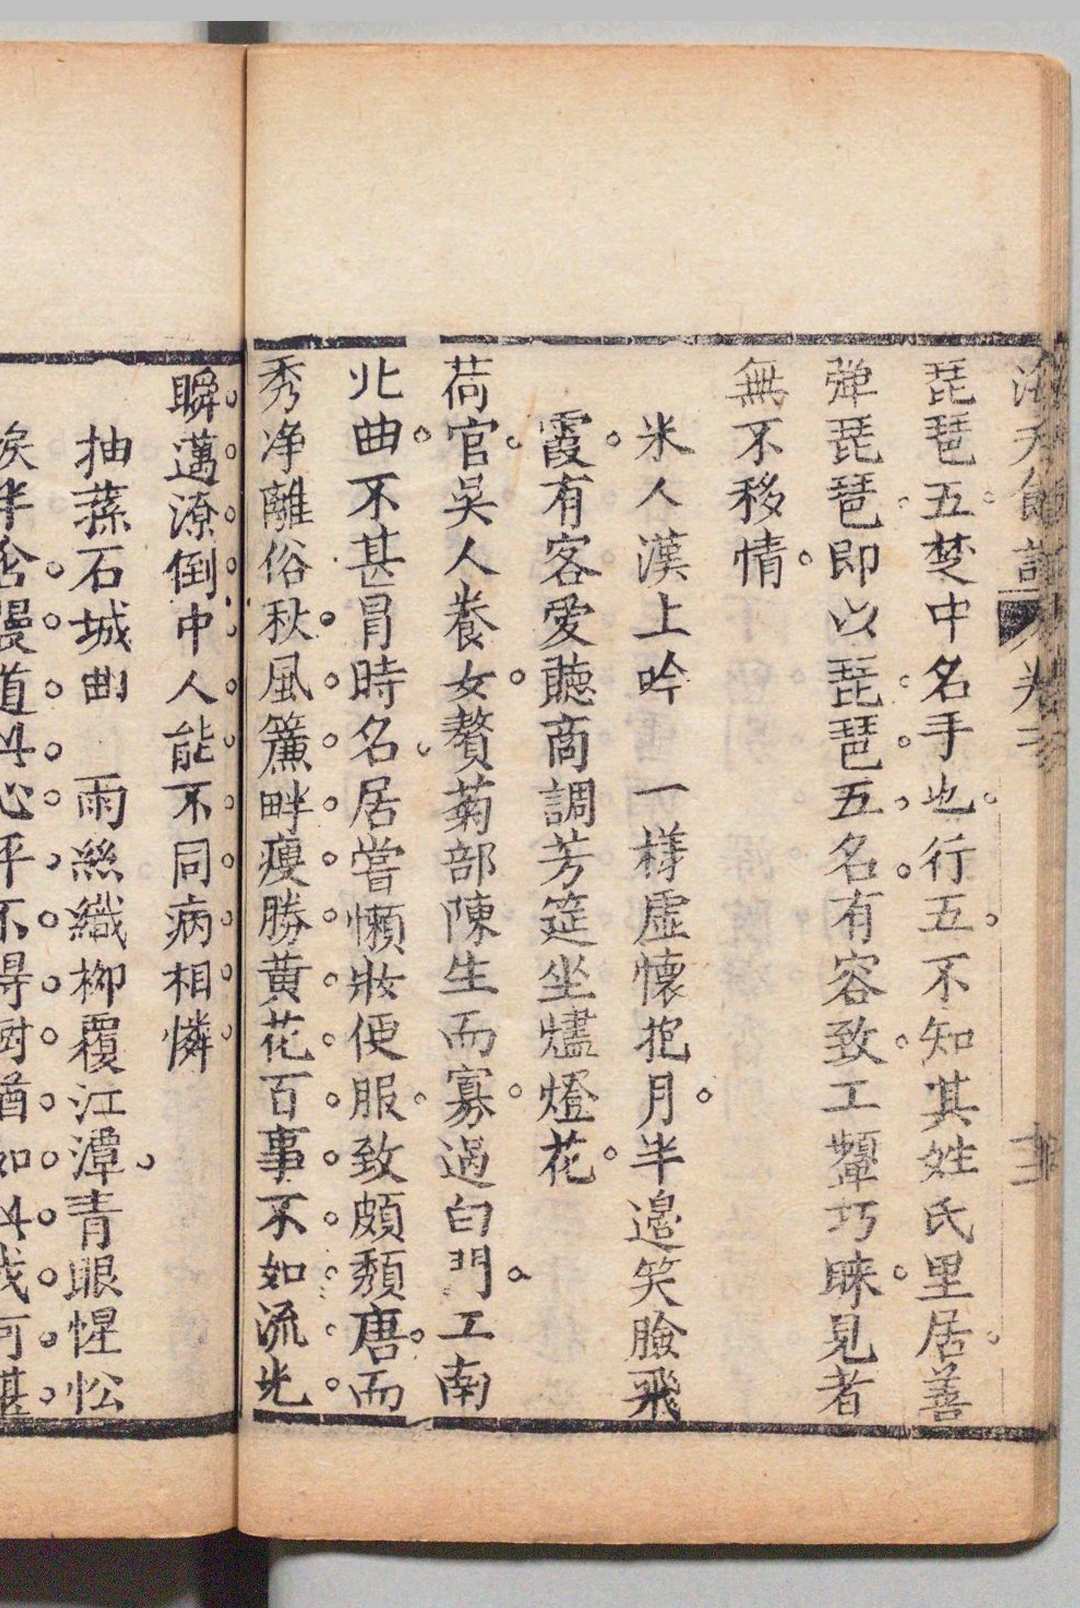 琵琶五楚中名手也行五不知其姓氏里居善
弹琵琶即以琵琶五名有容致工顰巧睞見者
無不移情
米人漢上吟 一様虛懷抱月半邉笑臉飛
霞有客愛聽商調芳筵坐燼燈花
荷官吳人養女贅菊部陳生而寡過白門工南
北曲不甚冐時名居嘗懶妝便服致頗頽唐而
秀净離俗秋風簾畔瘦勝黄花百事不如流光
瞬邁潦倒中人能不同病相憐
抽蓀石城曲 雨絲織柳覆江潭青眼惺忪